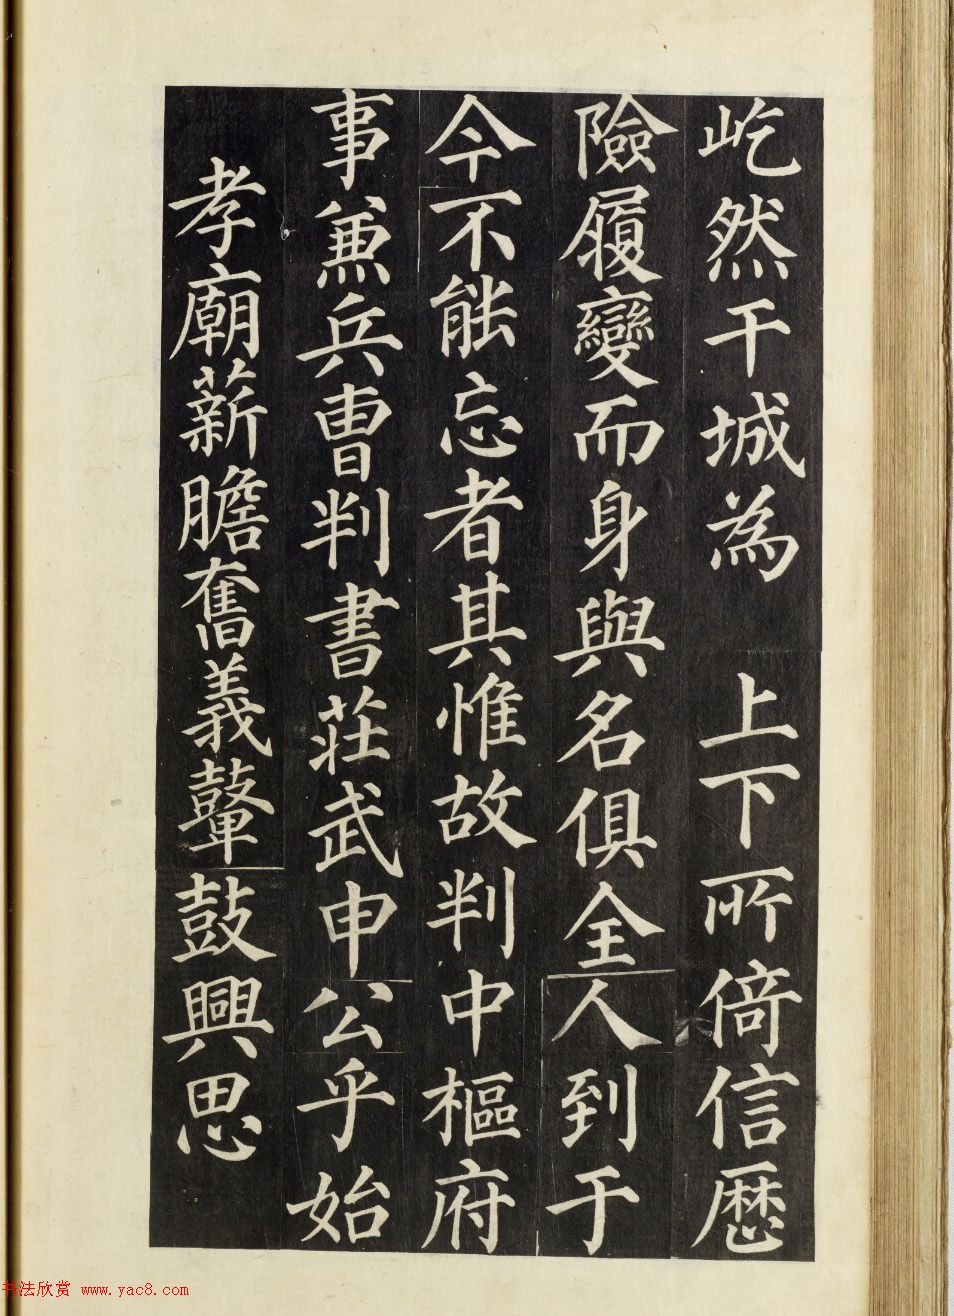 屹然干城為　上下所倚信歷
險履變而身與名俱全人到于
今不能忘者其惟故判中樞府
事兼兵曹判書莊武申公乎始
孝廟薪膽奮義鼙鼓興思
书法欣赏 www.yac8.com